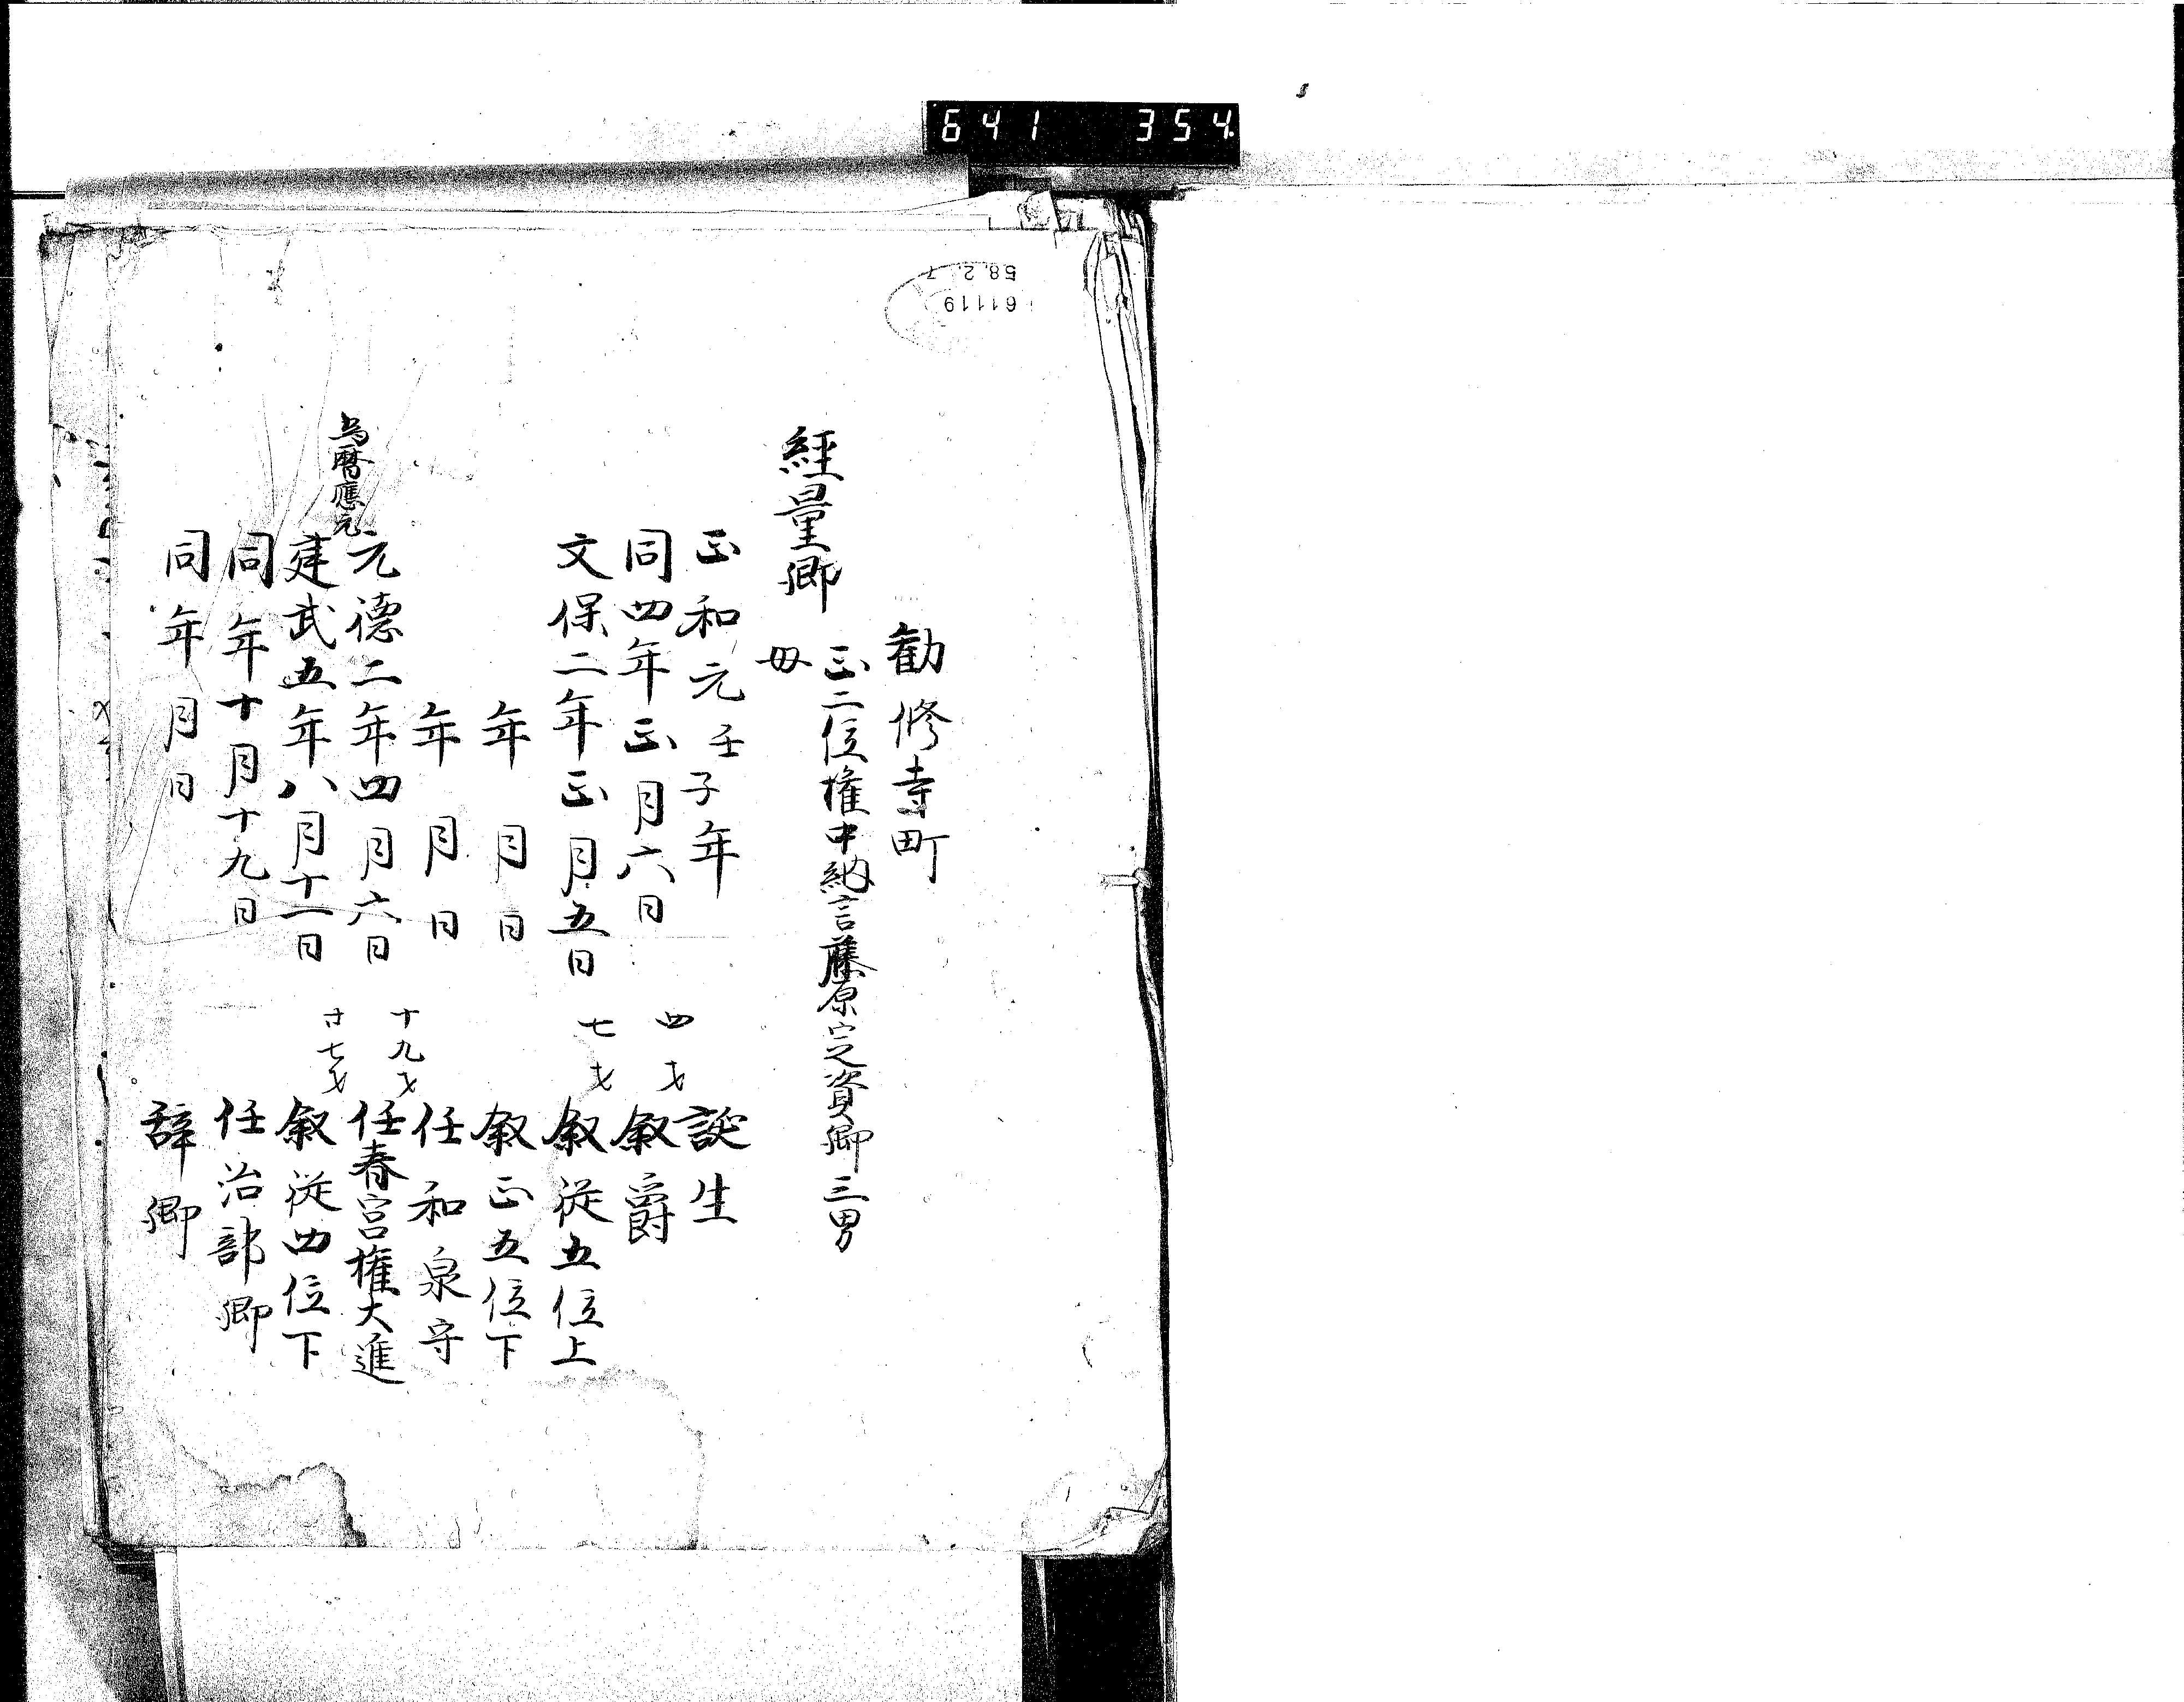 641 354
61119
58.2.7
勧修寺町
經量卿
正二位権中納言藤原定資卿三男
母
正和元壬子年 誕生
同四年正月六日 四才 叙爵
文保二年正月五日 七才 叙従五位上
年 月 日 叙正五位下
年 月 日 任和泉守
元德二年四月六日 十九才 任春宮権大進
為暦應元
建武五年八月十一日 廿七才 叙従四位下
同年十月十九日 任治部卿
同年月日 辞卿